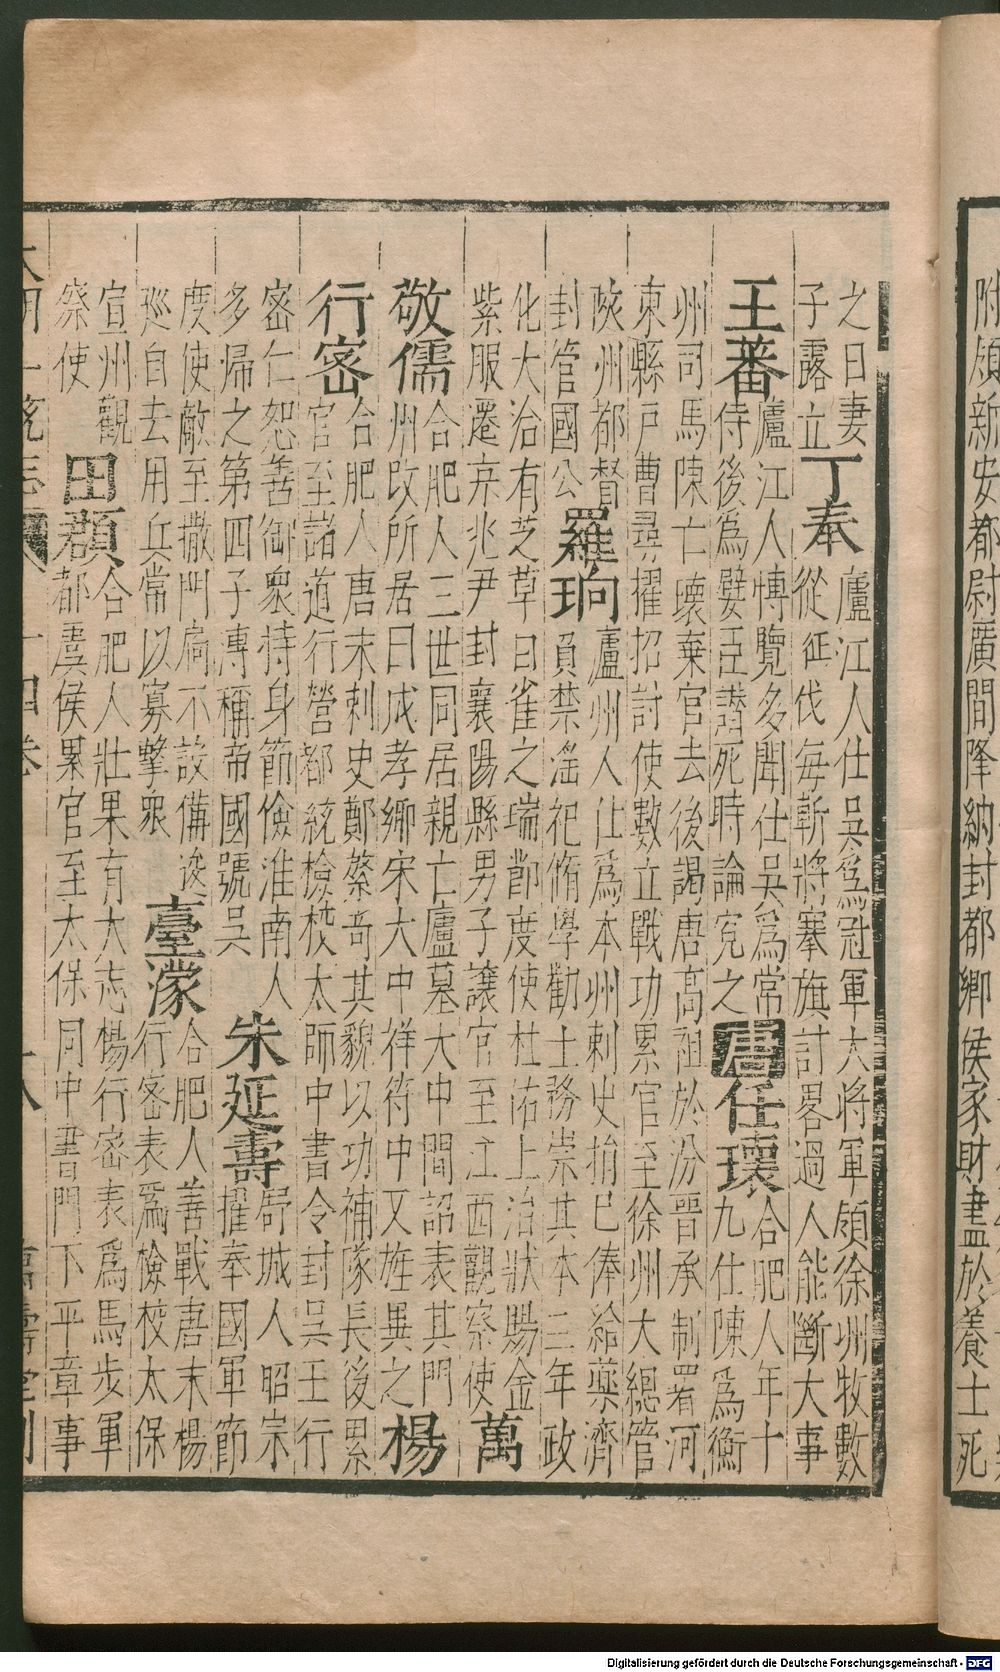 附頍新安都尉廣間降納封都鄉侯家財盡於養士死
之日妻
子露立
丁奉
廬江人仕吳為冠軍大將軍領徐州牧數
從征伐每斬將搴旗討畧過人能斷大事
王蕃
廬江人博覽多聞仕吳為常
侍後為嬖臣譖死時論寃之
唐任瓌
合肥人年十
九仕陳為衡
州司馬陳亡瓌棄官去後謁唐高祖於汾晉承制署河
東縣戶曹尋擢招討使數立戰功累官至徐州大總管
陜州都督
封管國公
羅珦
廬州人仕為本州刺史捐已俸給藥濟
負禁滛祀脩學勸士務崇其本三年政
化大洽有芝草白雀之瑞節度使杜佑上治狀賜金
紫服遷京兆尹封襄陽縣男子讓官至江西觀察使
萬
敬儒
合肥人三世同居親亡廬墓大中間詔表其門
州改所居曰成孝鄉宋大中祥符中又旌異之
楊
行密
合肥人唐末刺史鄭棨奇其貌以功補隊長後累
官至諸道行營都統檢校太師中書令封吳王行
密仁恕善御衆持身節儉淮南人
多歸之第四子溥稱帝國號吳
朱延壽
舒城人昭宗
擢奉國軍節
度使敵至撒門扃不設備逡
廵自去用兵常以寡擊衆
臺濛
合肥人善戰唐末楊
行密表為檢校太保
宣州觀
察使
田頵
合肥人壯果有大志楊行密表為馬步軍
都虞侯累官至太保同中書門下平章事
大明一統志 十四卷 十八 萬壽堂刊
Digitalisierung gefördert durch die Deutsche Forschungsgemeinschaft - DFG